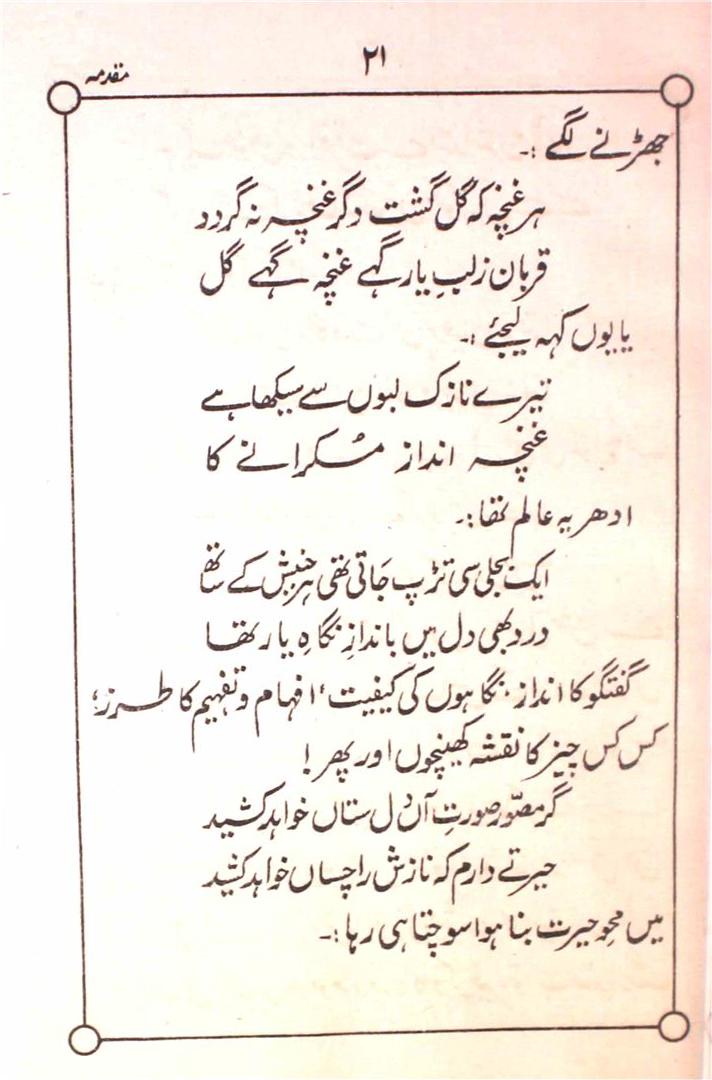 ۲۱
مقدمہ
جھڑنے لگے :۔
ہر غنچہ کہ گل گشت دگر غنچہ نہ گردد
قربان زلبِ یار گہے غنچہ گہے گل
یا یوں کہہ لیجئے :۔
تیرے نازک لبوں سے سیکھا ہے
غنچہ انداز مُسکرانے کا
ادھر یہ عالم تھا :۔
ایک بجلی سی تڑپ جاتی تھی ہر جنبش کے ساتھ
درد بھی دل میں باندازِ نگاہِ یار تھا
گفتگو کا انداز، نگاہوں کی کیفیت، افہام و تفہیم کا طرز؛
کس کس چیز کا نقشہ کھینچوں اور پھر !
گر مصوّر صورتِ آں دل ستاں خواہد کشید
حیرتے دارم کہ نازش را چساں خواہد کشید
میں محوِ حیرت بنا ہوا سوچتا ہی رہا :۔